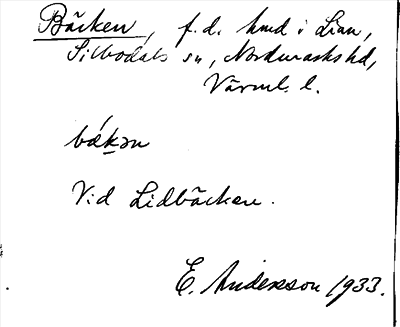 Bäcken, f.d. hmd i Lian,
Silbodals sn, Nordmarks hd,
Värml. l.
bǽkən
Vid Lidbäcken.
E. Andersson 1933.